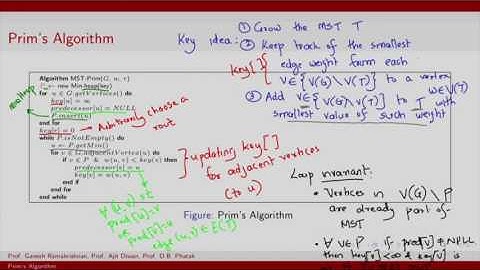 Prim's Algorithm
Algorithm MST-Prim(G, w, r)
P ← new Min heap(key)
for u ∈ G.getVertices() do
key[u] = ∞
predecessor[u] = NULL
P.insert(u)
end for
key[r] = 0
while P.isNotEmpty() do
u ← P.getMin()
for v ∈ G.adjacentVertex(u) do
if v ∈ P & w(u, v) < key(v) then
predecessor[v] = u
key[v] = w(u, v)
end if
end for
end while
minheap
Arbitrarily choose a
root
Key idea:
① Grow the MST T
② Keep track of the smallest
edge weight form each
key[]
v∈{V(G)\V(T)} to a vertex
w∈V(T)
③ Add v∈{V(G)\V(T)} to T with
smallest value of such weight
updating key[]
for adjacent vertices
(to u)
∀ (u,v) st
pred[u]=v
or
pred[v]=u
edge (u,v) ∈ E(T)
Figure: Prim's Algorithm
Loop invariant:
• Vertices in V(G)\P
are already part of
MST
• ∀ v∈P if pred[v]≠NULL
then key[v]<∞ & key[v] is
Prof. Ganesh Ramakrishnan, Prof. Ajit Diwan, Prof. D.B. Phatak
Prim's Algorithm